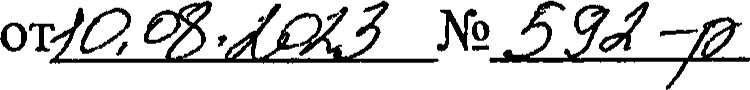 от 10.08.2023 № 592-р